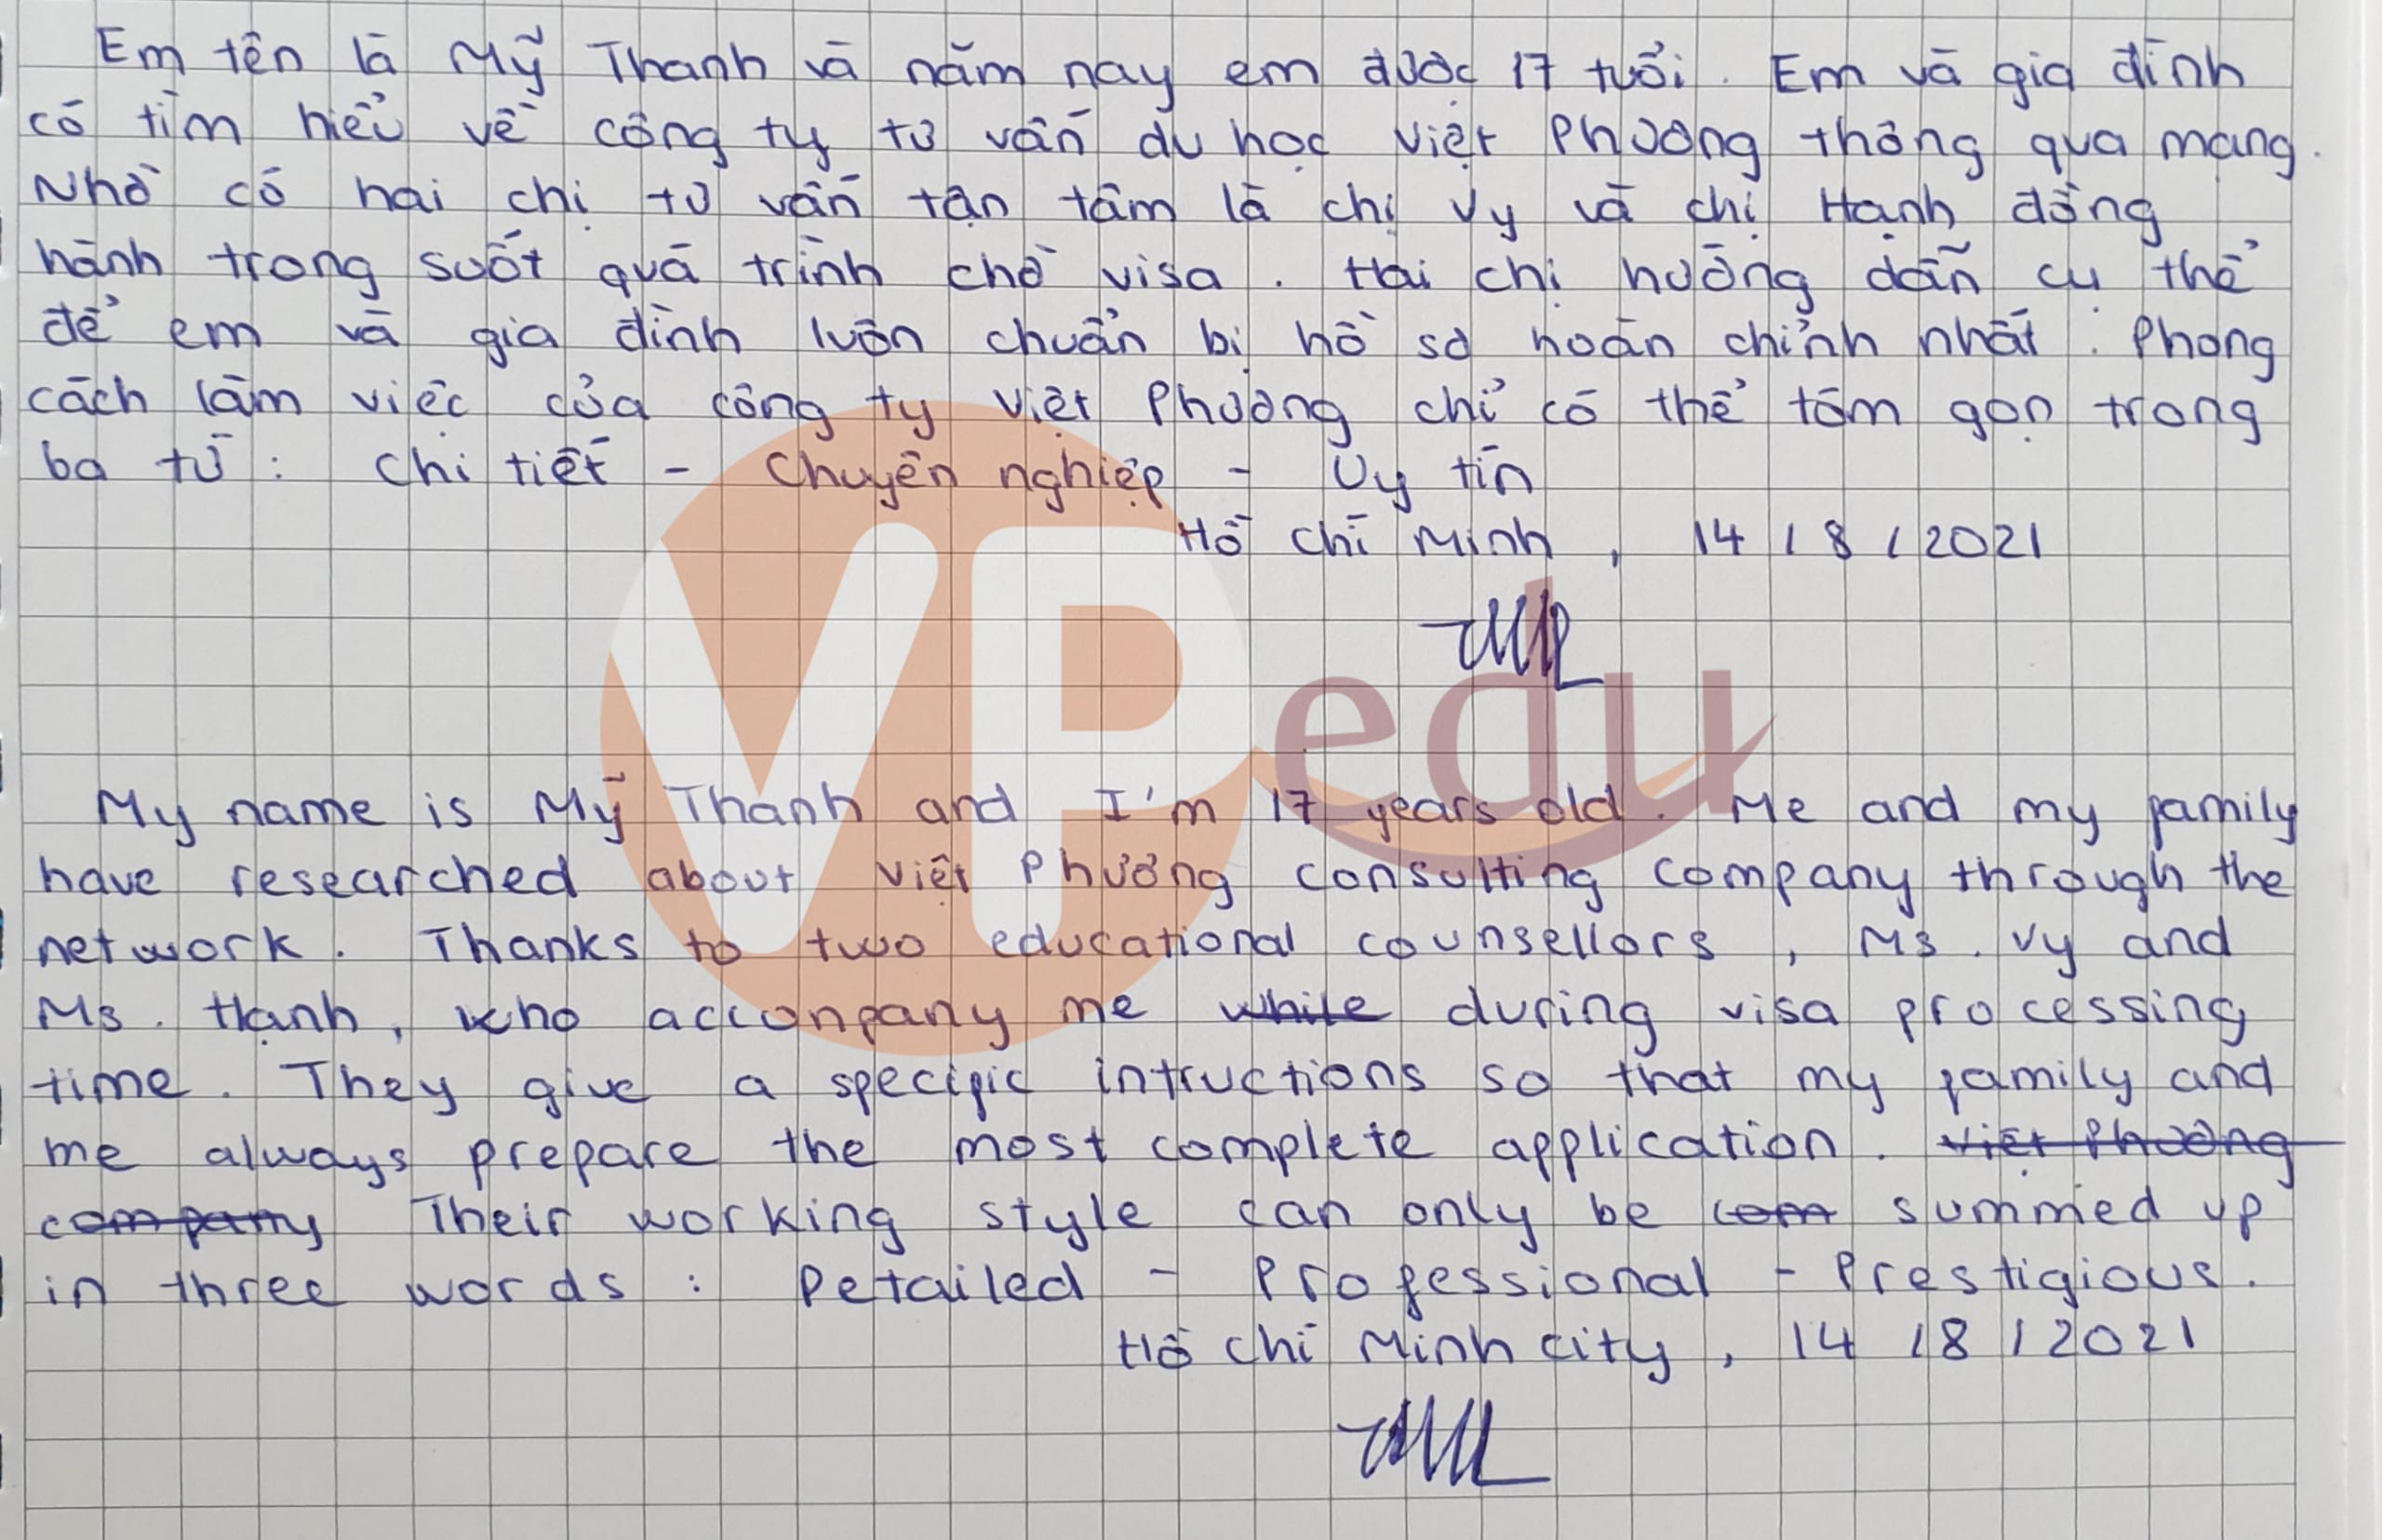 Em tên là Mỹ Thanh và năm nay em được 17 tuổi. Em và gia đình
có tìm hiểu về công ty tư vấn du học Việt Phương thông qua mạng.
Nhờ có hai chị tư vấn tận tâm là chị Vy và chị Hạnh đồng
hành trong suốt quá trình chờ visa. Hai chị hướng dẫn cụ thể
để em và gia đình luôn chuẩn bị hồ sơ hoàn chỉnh nhất. Phong
cách làm việc của công ty Việt Phương chỉ có thể tóm gọn trong
ba từ: Chi tiết - Chuyên nghiệp - Uy tín
Hồ Chí Minh, 14/8/2021
VPedu
My name is Mỹ Thanh and I'm 17 years old. Me and my family
have researched about Việt Phương consulting company through the
network. Thanks to two educational counsellors, Ms. Vy and
Ms. Hạnh, who acconpany me while during visa processing
time. They give a specific intructions so that my family and
me always prepare the most complete application. Việt Phương
company Their working style can only be com summed up
in three words: Detailed - Professional - Prestigious.
Hồ Chí Minh city, 14/8/2021